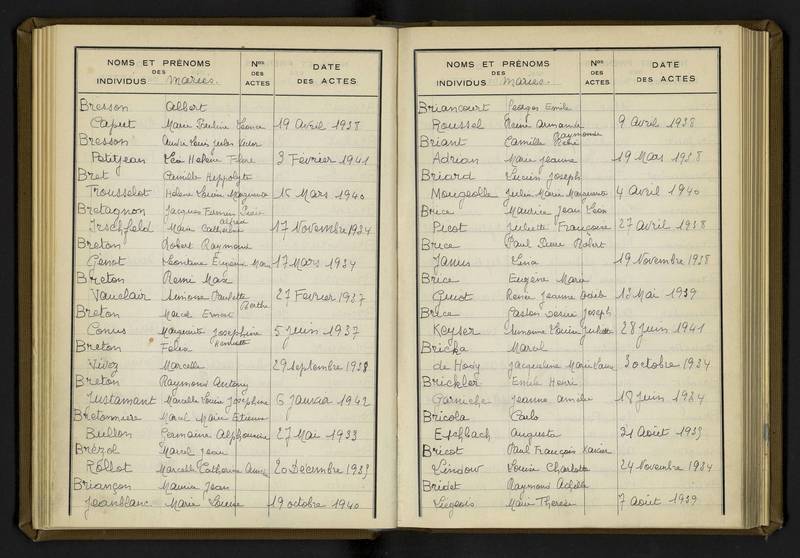 NOMS ET PRÉNOMS
DES
INDIVIDUS mariés.
Nos
DES
ACTES
DATE
DES ACTES
Bresson Albert
Caput Marie Pauline Léonie 19 Avril 1938
Bresson André Louis Jules
Petitjean Léa Hélène Flore 3 Février 1941
Bret Camille Hippolyte
Trousselot Hélène Louise Marguerite 15 Mars 1940
Bretagnon Jacques Firmin
Irschfeld Marie Catherine 17 Novembre 1934
Breton Robert Raymond
Genot Léontine Eugénie 17 Mars 1934
Breton Rémi Max
Vauclair Simone Paulette Berthe 27 Février 1937
Breton Marcel Ernest
Conus Marguerite Joséphine Henriette 5 Juin 1937
Breton Félix
Vivez Marcelle 29 septembre 1938
Breton Raymond Antony
Justamant Marcelle Louise Joséphine 6 Janvier 1942
Bretonniere Marcel Marie Etienne
Bullon Germaine Alphonsine 27 Mai 1933
Brézol Marcel Jean
Rollot Marcelle Catherine 20 Décembre 1933
Briançon Maurice Jean
Jeanblanc Marie Louise 19 octobre 1940
NOMS ET PRÉNOMS
DES
INDIVIDUS mariés.
Nos
DES
ACTES
DATE
DES ACTES
Briancourt Georges Emile
Roussel Renée Armande 9 Avril 1938
Briant Camille Raymonde
Adrian Marie Jeanne 19 Mars 1938
Briard Lucien Joseph
Mougeolle Julia Marie Marguerite 4 avril 1940
Brice Maurice Jean Léon
Picot Juliette Françoise 27 avril 1938
Brice Paul Pierre Robert
Janus Lina 19 Novembre 1938
Brice Eugène Marie
Guiot Renée Jeanne 13 Mai 1939
Brice Gaston Joseph
Keyser Simone Louise Juliette 28 juin 1941
Bricka Marcel
de Hody Jacqueline Marie 3 octobre 1934
Brickler Emile Henri
Garniche Jeanne Amélie 18 Juin 1934
Bricola Carlo
Eschbach Augusta 31 Août 1933
Bricot Paul François Xavier
Lindow Louise Charlotte 24 Novembre 1934
Bridet Raymond Achille
Liegeois Marie Thérèse 7 août 1939